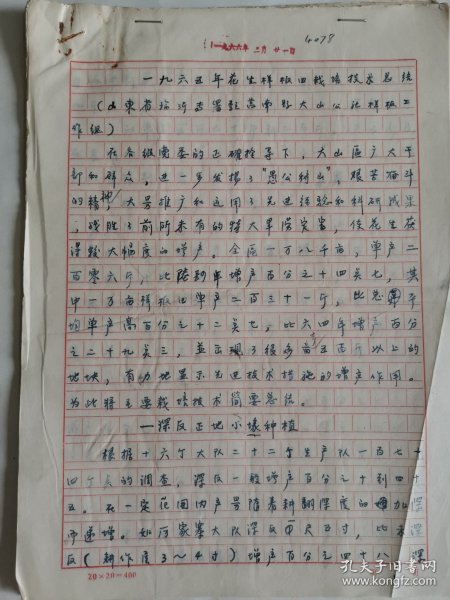 4078
一九六六年 二月 廿一日
一九六五年花生样板田栽培技术总结
(山东省临沂专署驻莒南县大山公社样板工
作组)
在各级党委的正确领导下，大山区广大干
部和群众，进一步发扬了"愚公移山"，艰苦奋斗
的精神，大量推广和运用了先进经验和科研成果
，战胜了前所未有的特大旱涝灾害，使花生获
得较大幅度的增产。全区一万八千亩，单产二
百零六斤，比六四年增产百分之十四点七，其
中一万亩样板田单产二百三十一斤，比总平
均单产高百分之十二点七，比六四年增产百分
之二十九点三，并出现了很多亩产五百斤以上的
地块，有力地显示先进技术措施的增产作用。
为此将主要栽培技术简要总结。
一深反正地小垅种植
根据十六个大队二十二个生产队一百七十
四个点的调查，深反一般增产百分之十到四十
五。在一定范围内产量随着耕翻深度的增加
而递增。如河家寨大队深反一尺五寸，比未深
反(耕作度3～4寸)增产百分之四十八，深
20×20=400
孔夫子旧书网